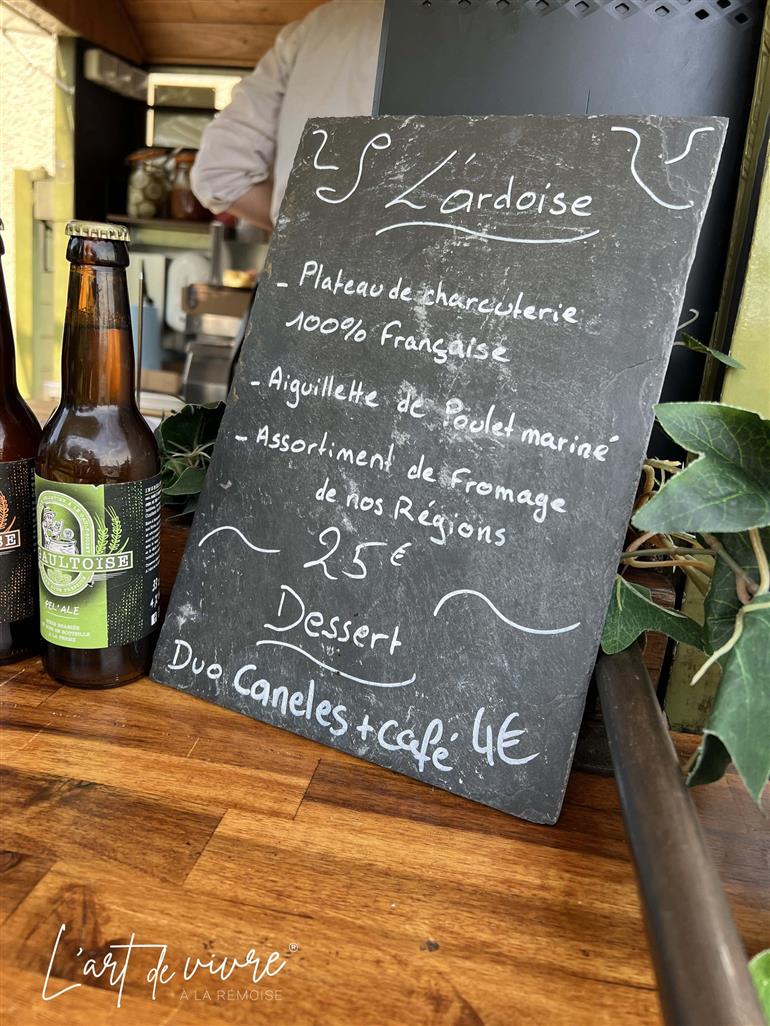 L'ardoise
- Plateau de charcuterie
100% Française
- Aiguillette de Poulet mariné
- Assortiment de Fromage
de nos Régions
25€
Dessert
Duo Caneles + café 4€
PEL'ALE
L'art de vivre®
À LA RÉMOISE